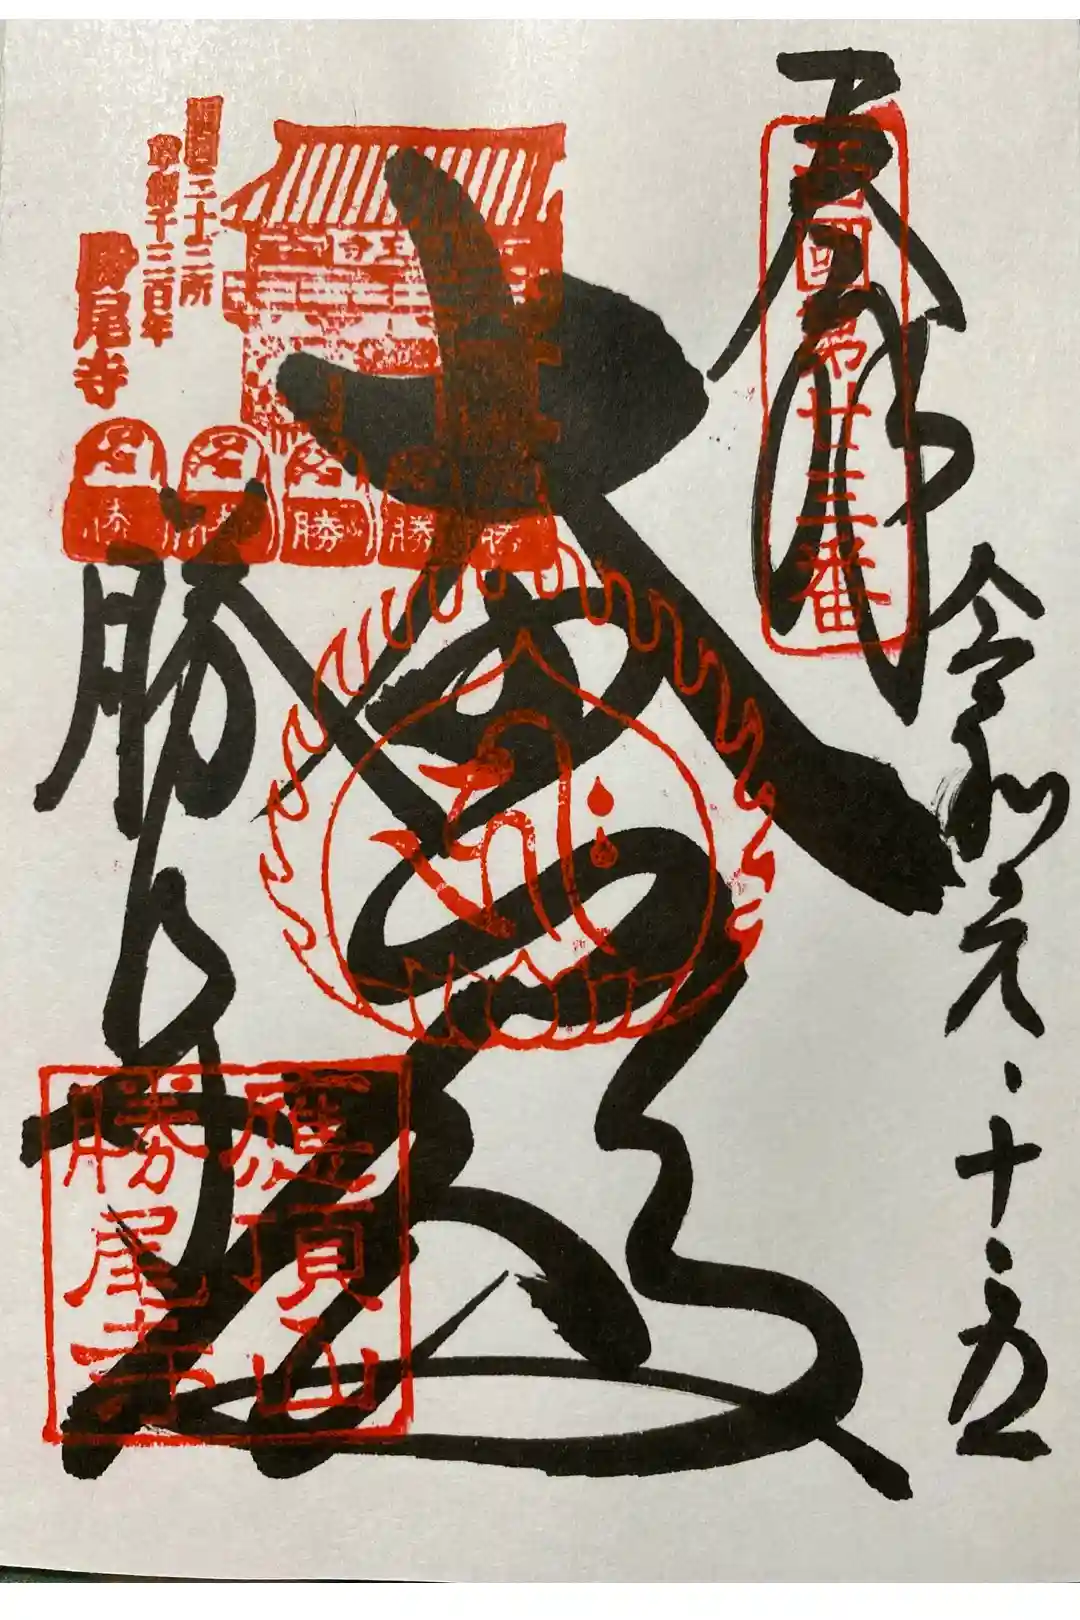 奉拝
西國第廿三番
令和元・十・五
大悲殿
開創三十三所
草創千三百年
勝尾寺
勝
勝
勝
勝
勝
勝尾寺
應頂山
勝尾寺